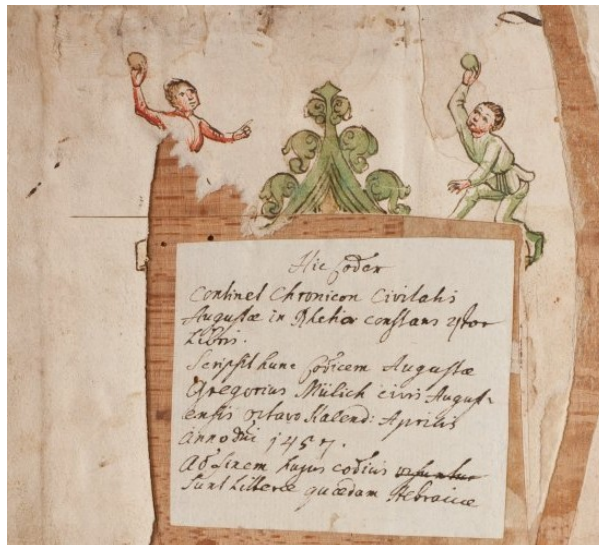 Hic Codex
Continet Chronicon Civitatis
Augustæ in Rhetia constans 4tuor
Libris.
Scripsit hunc Codicem Augustæ
Gregorius Mülich civis August-
ensis octavo Kalend: Aprilis
anno dni 1457.
ad finem hujus codicis
sunt Litteræ quædam Hebraicæ